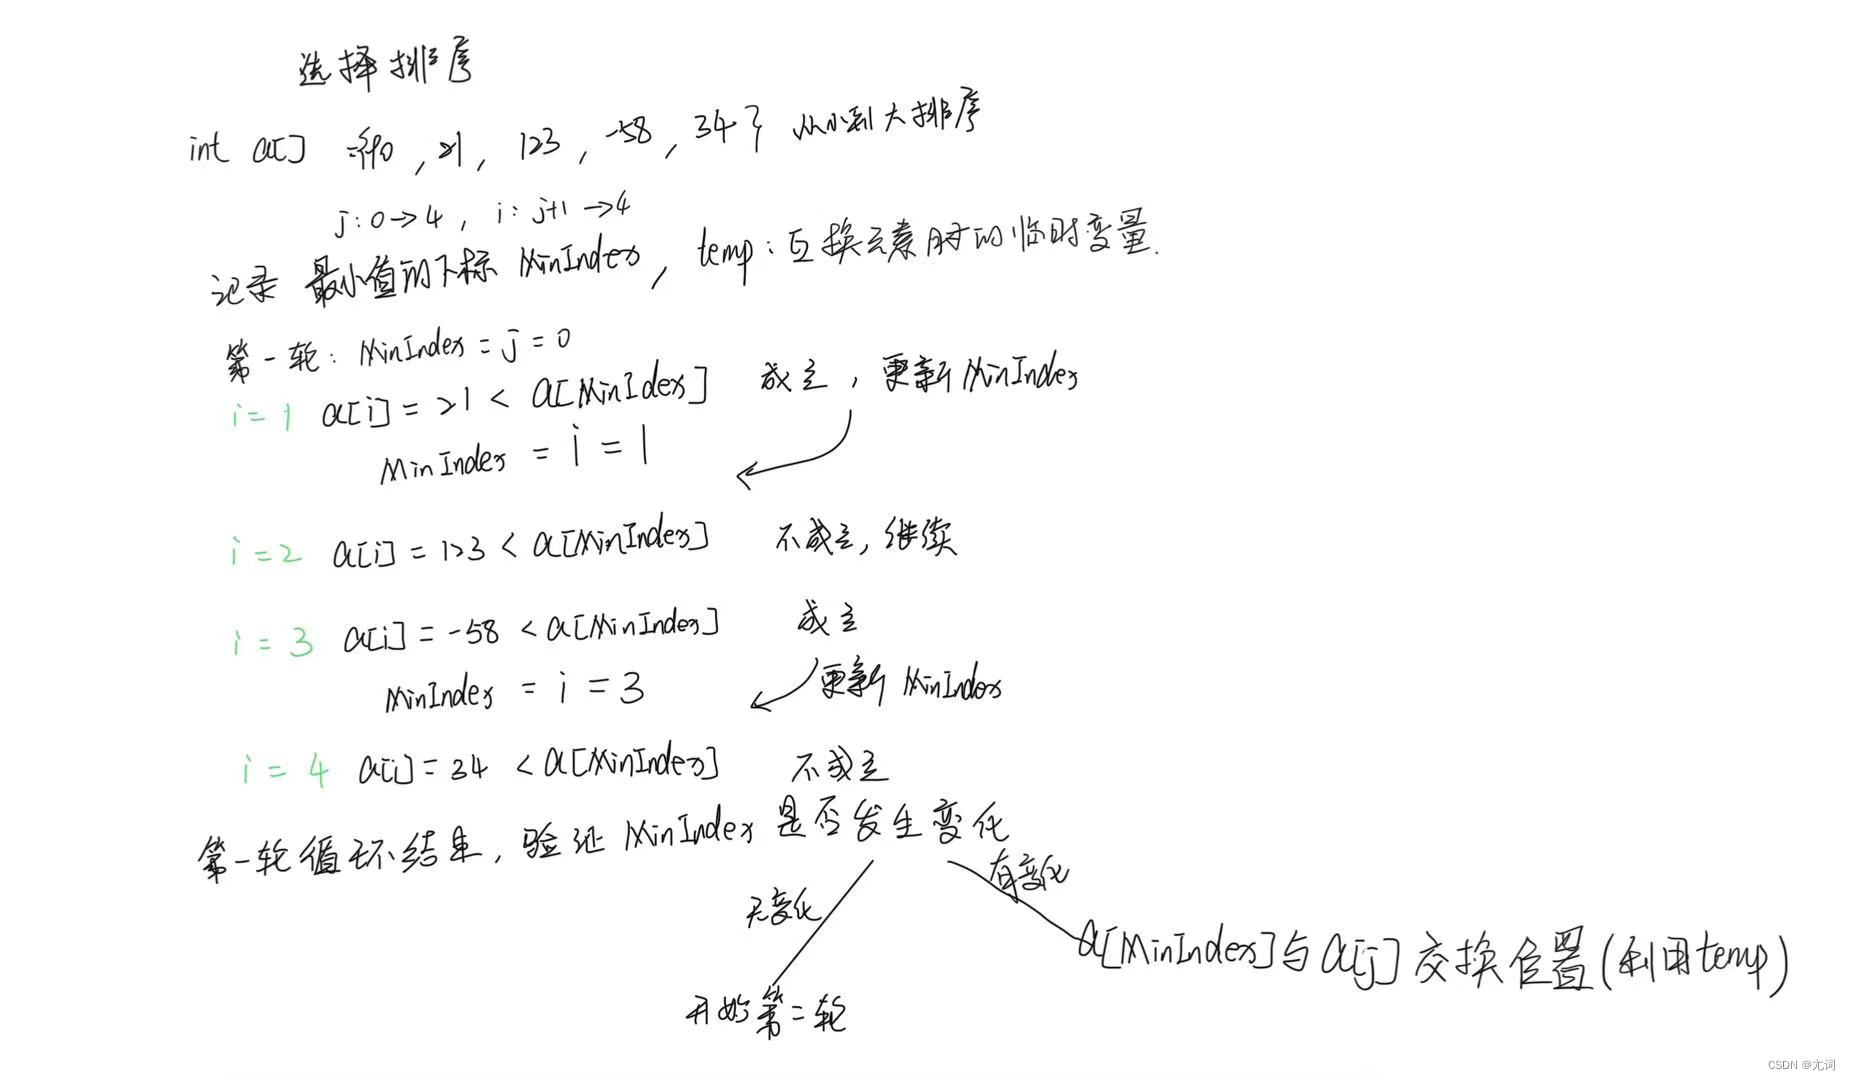 选择排序
int a[] ={90 , 21 , 123 , -58 , 34 } 从小到大排序
j : 0 → 4 , i : j+1 → 4
记录 最小值的下标 MinIndex , temp : 互换元素时的临时变量.
第一轮 : MinIndex = j = 0
i = 1 a[i] = 21 < a[MinIdex] 成立 , 更新 MinIndex
MinIndex = i = 1
i = 2 a[i] = 123 < a[MinIndex] 不成立, 继续
i = 3 a[i] = -58 < a[MinIndex] 成立
MinIndex = i = 3 更新 MinIndex
i = 4 a[i] = 34 < a[MinIndex] 不成立
第一轮循环结束, 验证 MinIndex 是否发生变化
无变化 有变化
a[MinIndex]与a[j] 交换位置(利用temp)
开始第二轮
CSDN @尢词